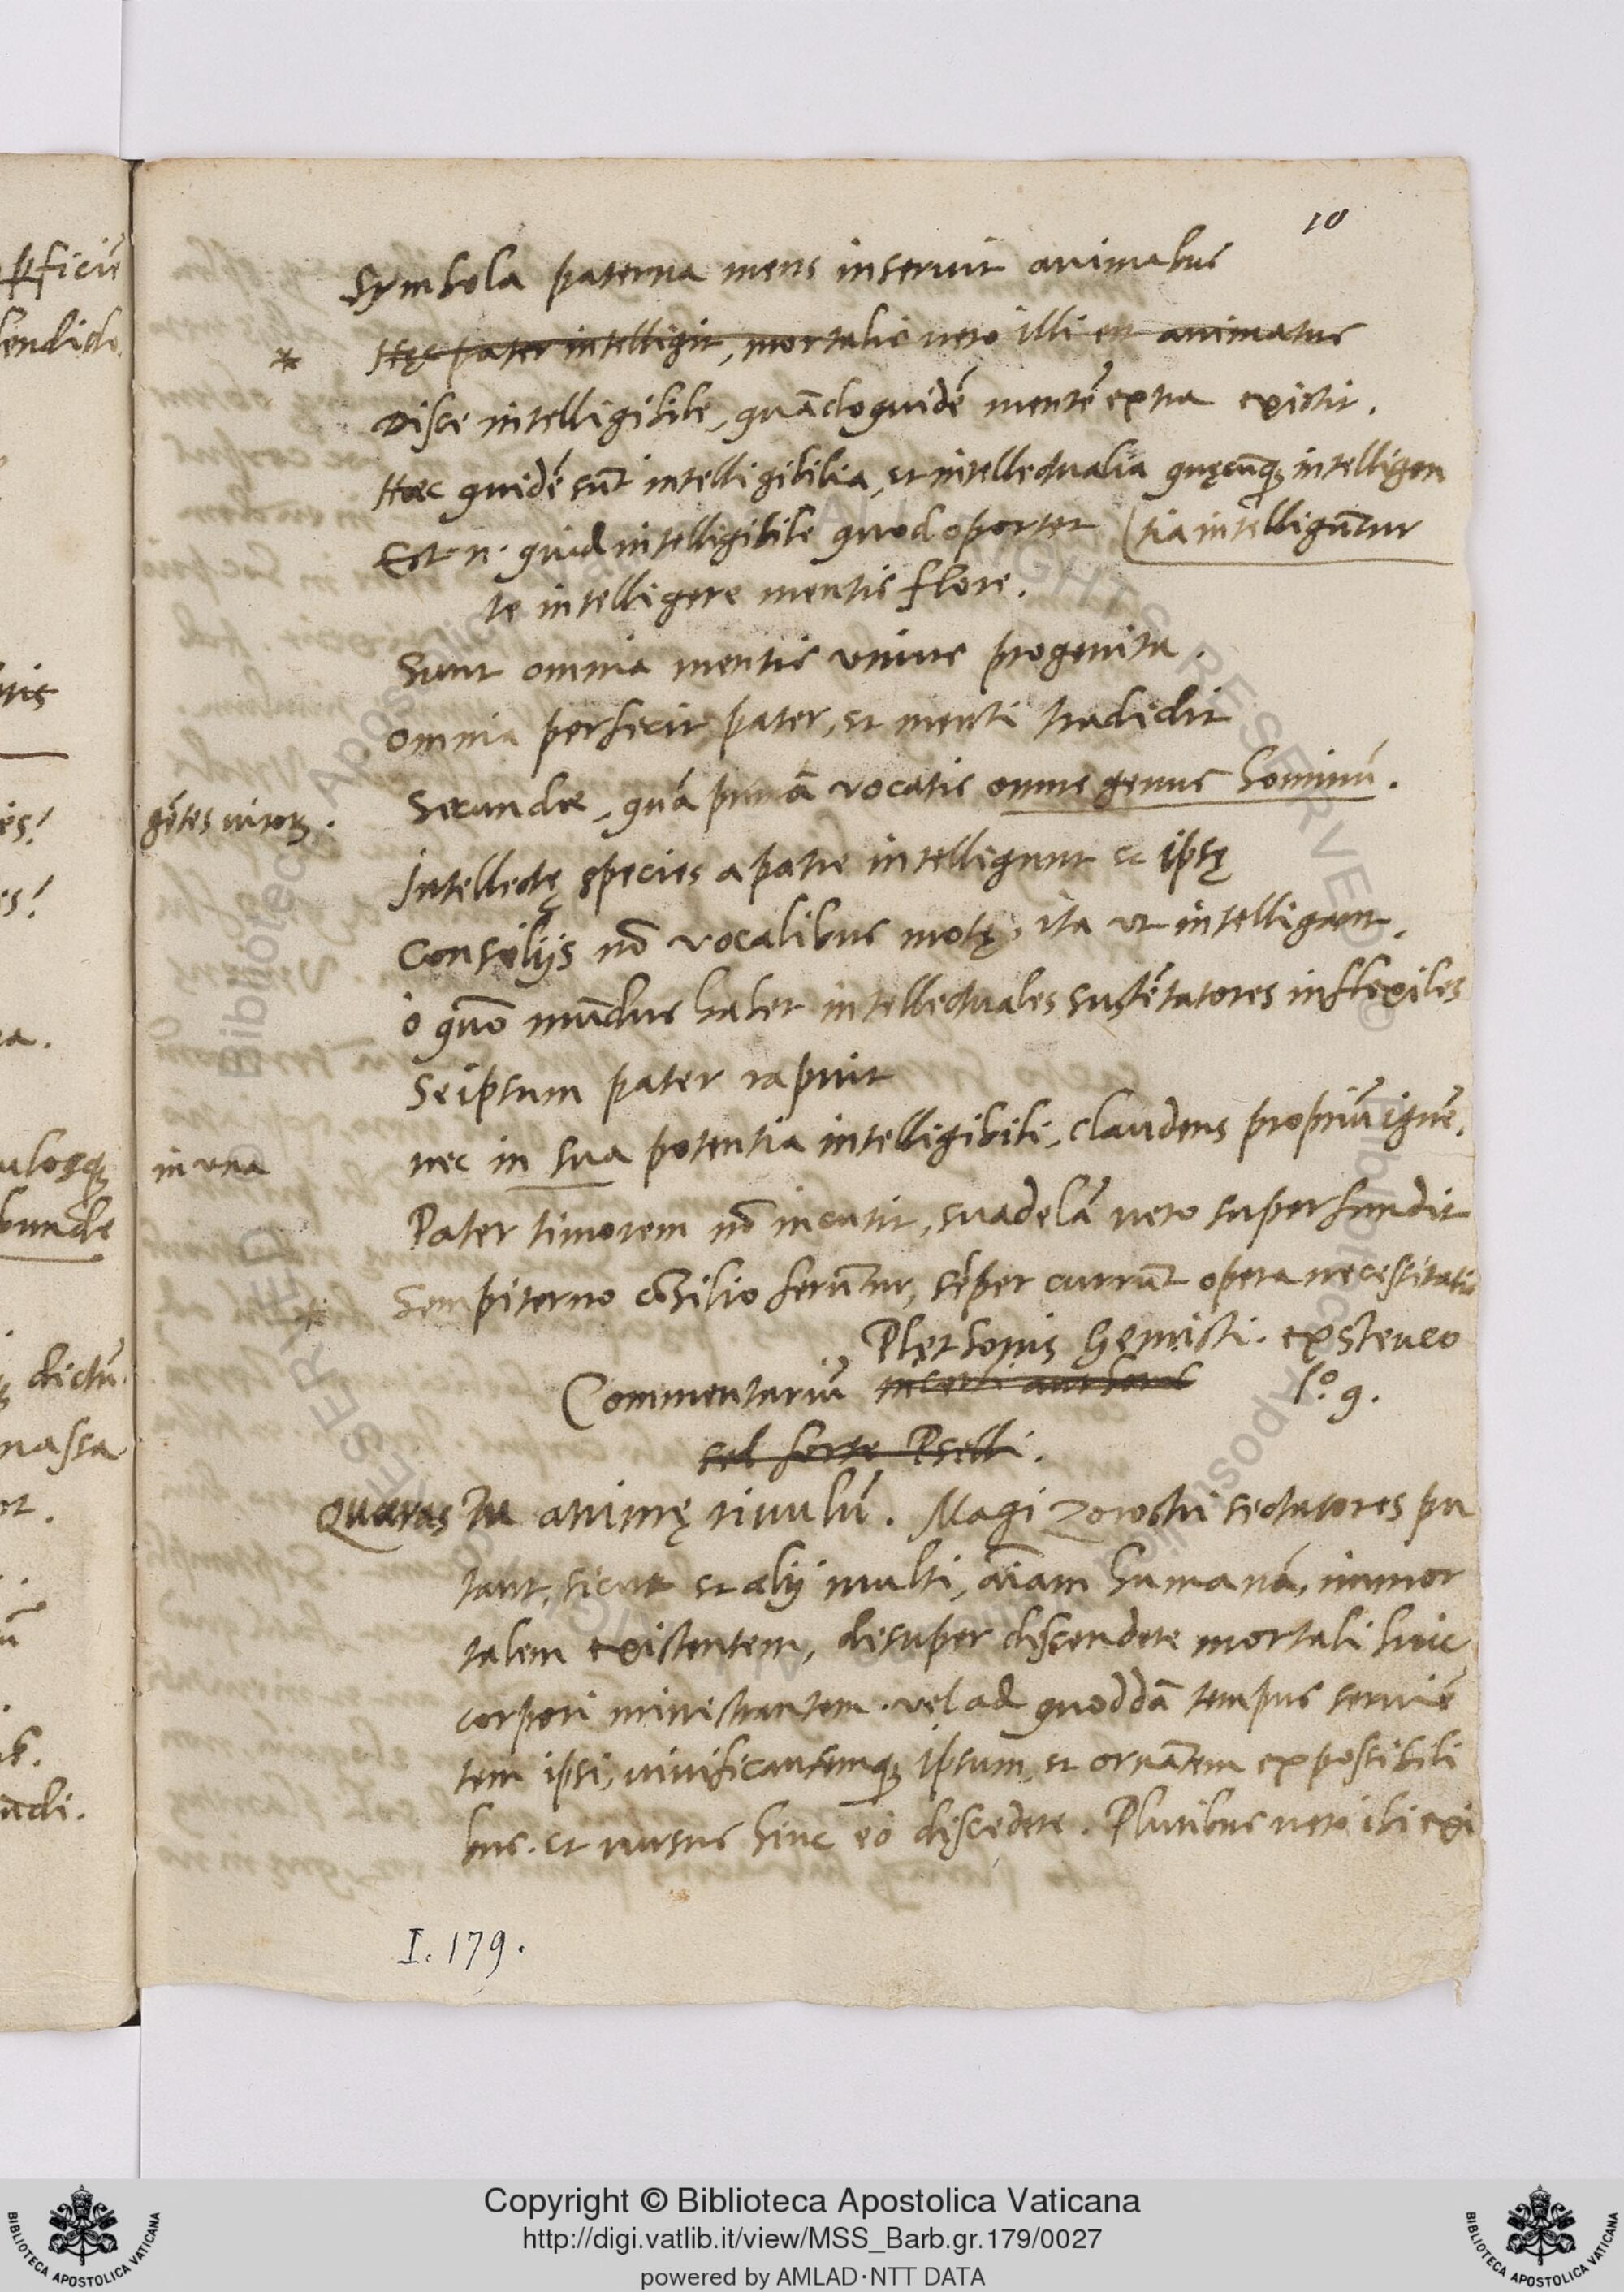 10
Symbola paterna mens inseruit animabus
* Hęc pater intelligit, mortalis uero illi est animatus
Disce intelligibile, quãdoquidẽ mentẽ extra existit.
Haec quidẽ sũt intelligibilia, et intellectualia quęcũq; intelligen
Est n. quid intelligibile quod oportet (tia intelligãtur
te intelligere mentis flore.
Sunt omnia mentis unius progenita.
omnia perfecit pater, et menti tradidit
gẽtes uiroꝝ. Secundæ, quã primã vocatis omne genus hominũ.
Intellectę species a patre intelligunt et ipsę
Consilijs nõ vocalibus motę, ita ut intelligant.
ò quõ mũdus habet intellectuales sustẽtatores inflexiles
Seipsum pater rapuit
in una nec in sua potentia intelligibili, claudens propriũ ignẽ.
Pater timorem nõ incutit, suadelã uero superfundit
* Sempiterno cõsilio ferũtur, sẽper currũt opera necessitatis
Plethonis Gemisti. ex Steuco
Commentariũ incerti authoris l.º 9.
sed forte Pselli.
Quæras tu animę riuulũ. Magi Zoroastri sectatores pu
tant, sicut et alij multi, aĩam humanã, immor
talem existentem, desuper descendere mortali huic
corpori ministrantem. vel ad quoddã tempus seruiẽ
tem ipsi, uiuificantemq; ipsum, et ornãtem ex possibili
bus. et rursus hinc eò discedere. Pluribus uero ibi exi
I. 179.
pficiũ
dictũ
massa
Copyright © Biblioteca Apostolica Vaticana
http://digi.vatlib.it/view/MSS_Barb.gr.179/0027
powered by AMLAD·NTT DATA
BIBLIOTECA APOSTOLICA VATICANA
BIBLIOTECA APOSTOLICA VATICANA